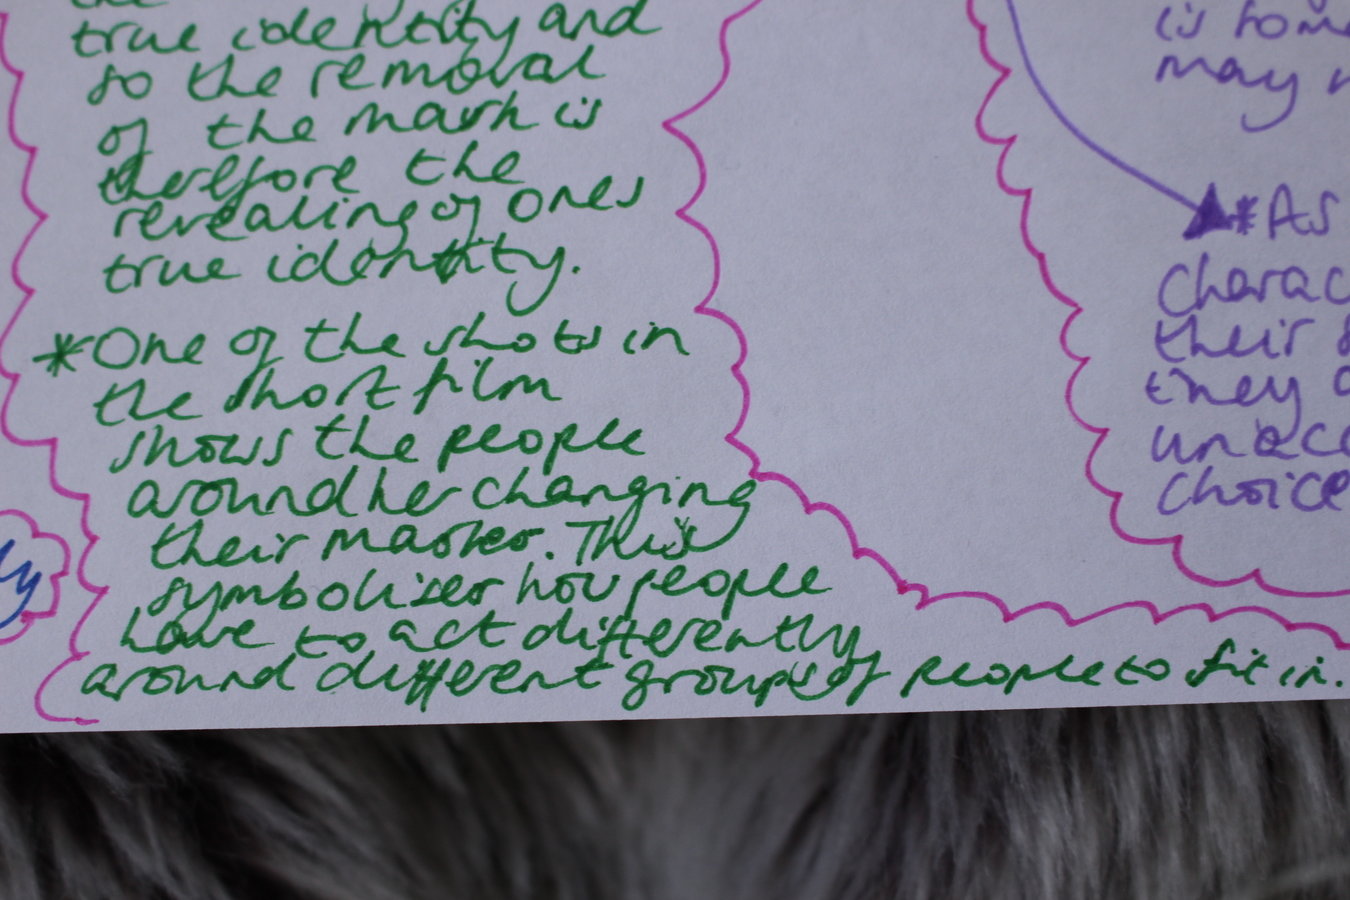 the
true identity and
so the removal
of the mask is
therefore the
revealing of ones
true identity.
*One of the shots in
the short film
shows the people
around her changing
their masks. This
symbolises how people
have to act differently
around different groups of people to fit in.
is some
may
*As
charac
their
they
unacc
choice